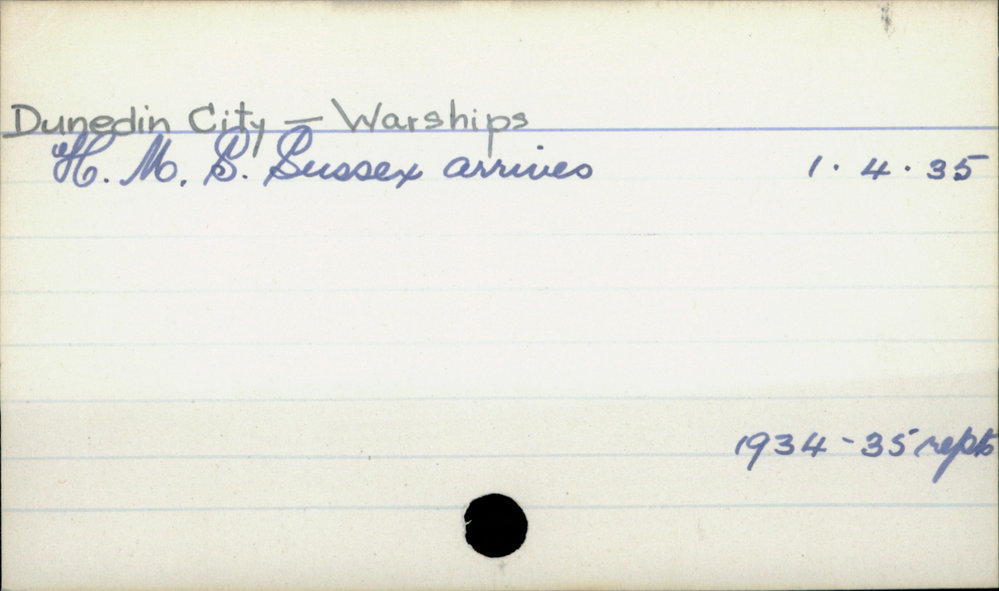 Dunedin City – Warships
H. M. S. Sussex arrives 1. 4. 35
1934-35 repts